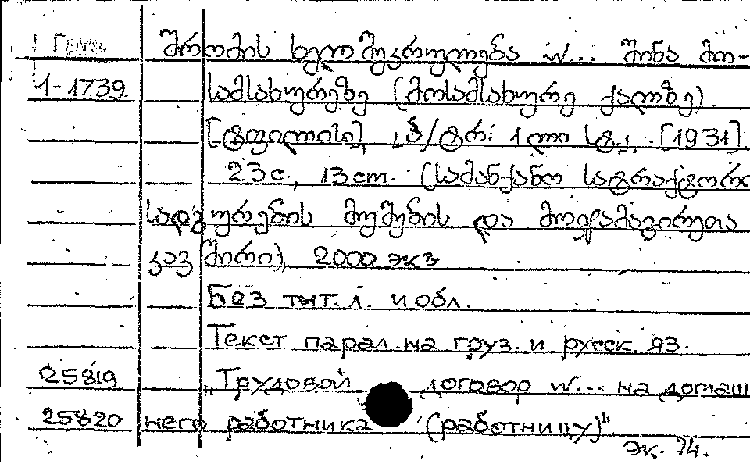 შრომის ხელშეკრულება №... შინა მო-
1-1739 სამსახურეზე (მოსამსახურე ქალზე).
[ტფილისი], 1ლი სტ., [1931].
23 с., 13 cm. (სამანქანო სატრაქტორო
სადგურების მუშების და მოჯამაგირეთა
კავშირი), 2000 экз
Без тит. л. и обл.
Текст парал. на груз. и русск. яз.
25819 „Трудовой договор №... на домаш
25820 него работника (работницу)"
эк. 74.